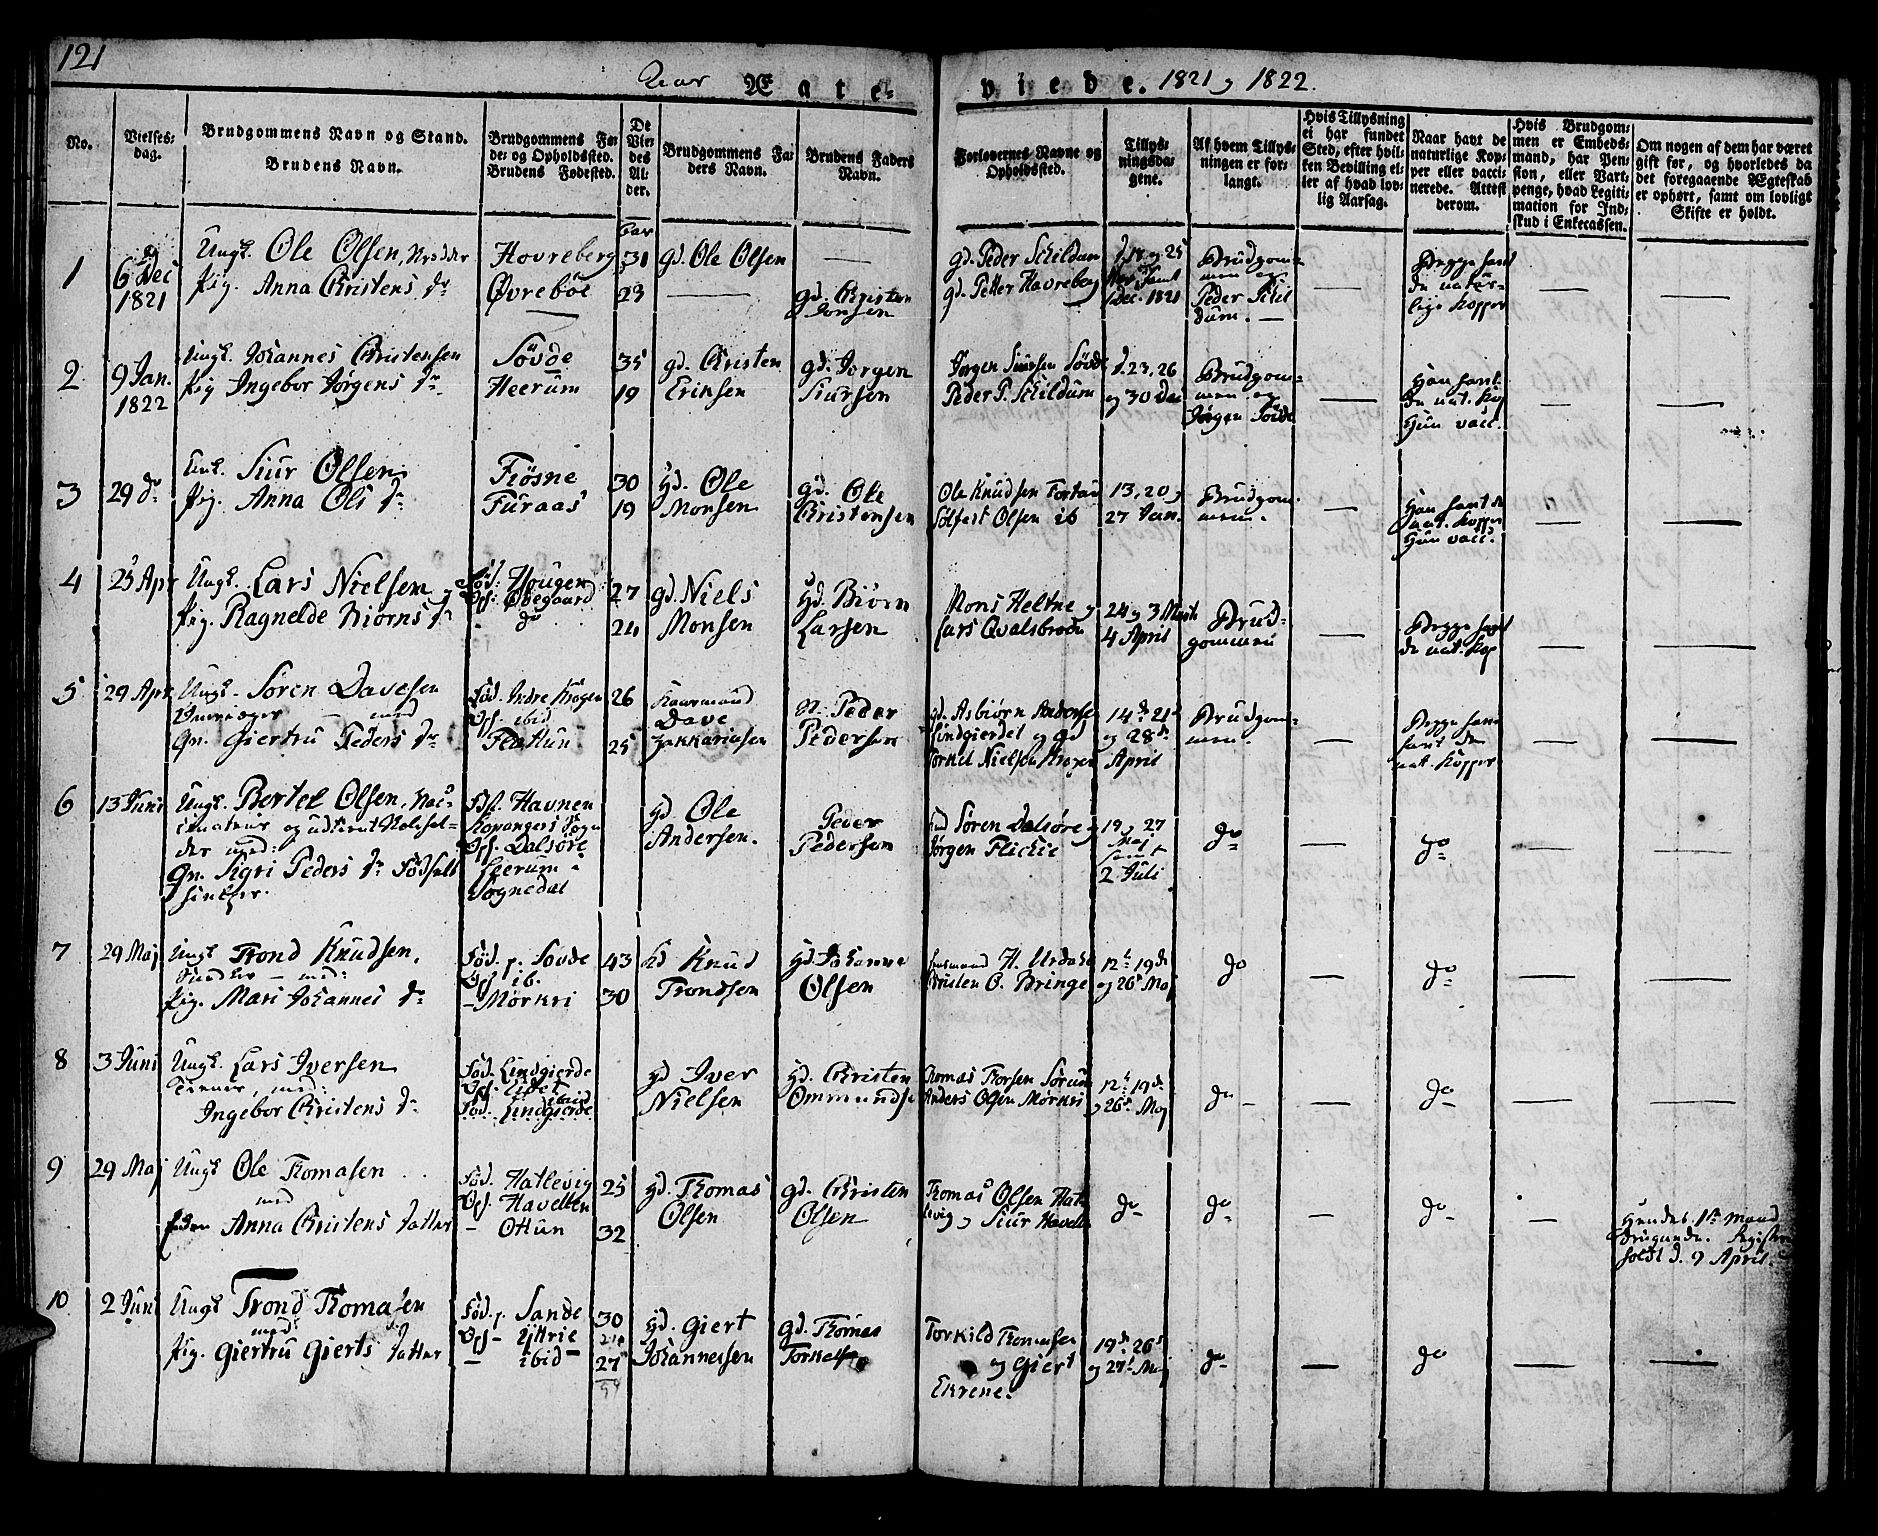 121
Aar Ægte-viede. 1821 og 1822.
No.
Vielses-
dag.
Brudgommens Navn og Stand.
Brudens Navn.
Brudgommens Fø-
de- og Opholdssted.
Brudens Fødested.
De
Vie-
des
Al-
der.
Brudgommens Fa-
ders Navn.
Brudens Faders
Navn.
Forlovernes Navne og
Opholdssted.
Tillys-
ningsda-
gene.
Af hvem Tillys-
ningen er for-
langt.
Hvis Tillysning
ei har fundet
Sted, efter hvil-
ken Bevilling el-
ler af hvad lov-
lig Aarsag.
Naar havt de
naturlige Kop-
per eller vacci-
nerede. Attest
derom.
Hvis Brudgom-
men er Embeds-
mand, har Pen-
sion, eller Vart-
penge, hvad Legiti-
mation for Ind-
skud i Enkecassen.
Om nogen af dem har været
gift før, og hvorledes da
det foregaaende Ægteskab
er ophørt, samt om lovligt
Skifte er holdt.
Aar
1
6 Dec
1821
Ungk. Ole Olsen,
Pig. Anna Christens dr
Hovreberg
Øvrebøe
31
23
gd. Ole Olsen
—
gd. Christen
Jonsen
gd. Peder Schildum
gd. Petter Havreberg
d. 18 og 25
Nov. samt
1 Dec. 1821
Brudgom-
men og
Peder Skil
dum. —
Begge havt
de natur-
lige Kopper
2
9 Jan.
1822
Ungk. Johannes Christensen
Pig Ingebor Jørgens dr
Søvde
Heerum
35
19
gd. Christen
Eriksen
gd. Jørgen
Siursen
Jørgen Siursen Søvde
Peder P. Schildum
d. 23, 26
og 30 Dec
Brudgom-
men og
Jørgen Søvde
Han havt
de nat. Kop
Hun vacc.
3
29 do
Ungk. Siur Olsen
Pig. Anna Ols dr
Frösne
Furaas
30
19
gd. Ole
Monsen
gd. Ole
Christensen
Ole Knudsen Fortun
Sölfest Olsen ib
13, 20 og
27 Jan.
Brudgom-
men.
Han havt de
nat. Kopper
Hun vacc.
4
25 Apr
Ungk. Lars Nielsen
Pig. Ragnelde Biörns dr
Fød. Hougen
Oph. Øbegaard
do
27
24
gd. Niels
Monsen
gd. Biörn
Larsen
Mons Heltne og
Lars Qvalsbroch
24 og 3 Marts
4 April
Brud-
gommen
Begge havt
de nat. Kop
5
29 Apr
Ungk. Søren Davesen
med
Qn. Giertru Peders dr
Fød. Indre Krogen
Oph. ibid
Flathun
26
25
Huusmand
Dave
Zakkariasen
Peder
Pedersen
gd. Asbiørn Andersen
Lindgierdet og gd
Torkel Nielsen Krogen
14de 21de
og 28de
April
Brudgom-
men.
Begge have
havt de
nat. Kopper
6
13 Juni
Ungk. Bertel Olsen, Vac-
cinateur og udtient
med:
Qn. Sigri Peders dr
Fød. Havnen
Kopangers Sogn
Oph. Dalsøre
Leerum i
Sognedal
gd Ole
Andersen.
Peder
Pedersen
Søren Dalsøre og
Jørgen Flickie
19 og 27
Maj
samt
2 Juli
do
do
7
29 Maj
Ungk Trond Knudsen,
— med:
Pig. Mari Johannes dr
Fød. p. Sovde
Oph. ib.
- Mørkri
43
30
gd Knud
Trondsen
gd. Johannes
Olsen
Huusmand H. Urdahl
Christen O. Bringe
12te 19de
og 26de Maj
do
do
8
3 Juni
Ungk. Lars Iversen
Tiener, med:
Ingebor Christens dr
Fød. Lindgierde
Oph. Eidet ibid
Fød. Lindgierde
gd Iver
Nielsen
gd. Christen
Ommundse
Thomas Thorsen Sørum
Anders Olsen Mørkri
12te 19de
og 26de Maj
do
do
9
29 Maj
Ungk Ole Thomasen
med
Anna Christens Datter
Fød. Hatlevig
Oph. Havellen
- Othun
25
32
gd. Thomas
Olsen
gd. Christen
Olsen
Thomas Olsen Hat-
levig og Siur Havelle
do
do
do
Hendes 1te Mand
holdt d. 9 April.
10
2 Juni
Ungk Trond Thomasen
med
Pig. Giertru Gierts Datter
Fød. p. Sande
Oph - Yttrie
- ibid
30
27
gd. Giert
Johannessen
gd. Thomas
Torkelse
Torkild Thomasen
og Giert
Ekrene.
19de 26de
og 27de Maj
do
do